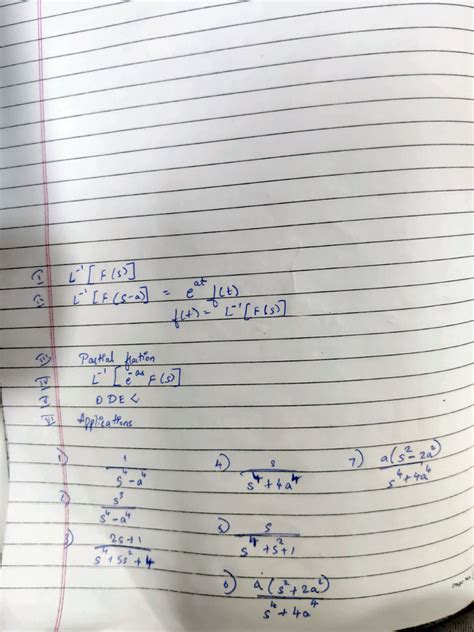 i) L⁻¹[F(s)]
ii) L⁻¹[F(s-a)] = e^at f(t)
f(t) = L⁻¹[F(s)]
iii) Partial fraction
iv) L⁻¹[e^-as F(s)]
v) ODE
vi) Applications
1) 1/(s⁴-a⁴)
2) s³/(s⁴-a⁴)
3) (2s+1)/(s⁴+5s²+4)
4) s/(s⁴+4a⁴)
5) s/(s⁴+s²+1)
6) a(s²+2a²)/(s⁴+4a⁴)
7) a(s²-2a²)/(s⁴+4a⁴)